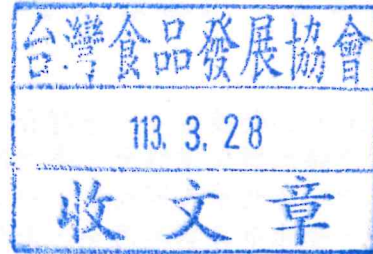 台灣食品發展協會
113. 3. 28
收文章